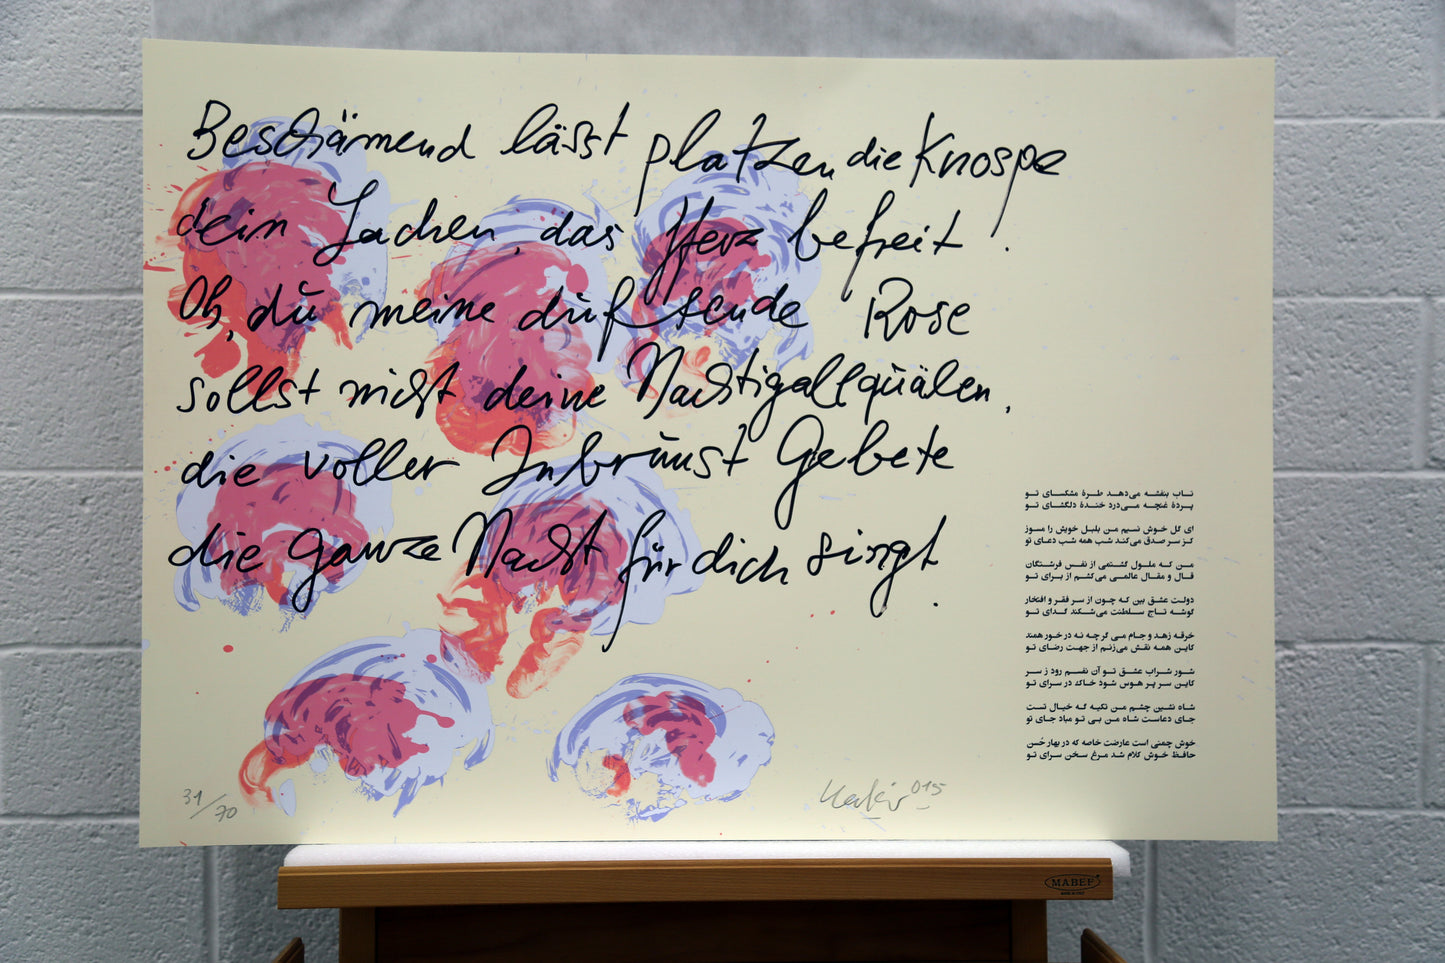 Beschämend lässt platzen die Knospe
dein Lachen, das Herz befreit.
Oh, du meine duftende Rose
sollst nicht deine Nachtigall quälen,
die voller Inbrunst Gebete
die ganze Nacht für dich singt.
تاب بنفشه می‌دهد طرهٔ مشکسای تو
پردهٔ غنچه می‌درد خندهٔ دلگشای تو
ای گل خوش نسیم من بلبل خویش را مسوز
کز سر صدق می‌کند شب همه شب دعای تو
من که ملول گشتمی از نفس فرشتگان
قال و مقال عالمی می‌کشم از برای تو
دولت عشق بین که چون از سر فقر و افتخار
گوشه تاج سلطنت می‌شکند گدای تو
خرقه زهد و جام می گرچه نه در خور همند
کاین همه نقش می‌زنم از جهت رضای تو
شور شراب عشق تو آن نفسم رود ز سر
کاین سر پر هوس شود خاک در سرای تو
شاه نشین چشم من تکیه گه خیال تست
جای دعاست شاه من بی تو مباد جای تو
خوش چمنی است عارضت خاصه که در بهار حُسن
حافظ خوش کلام شد مرغ سخن سرای تو
31/70
015
MABEF